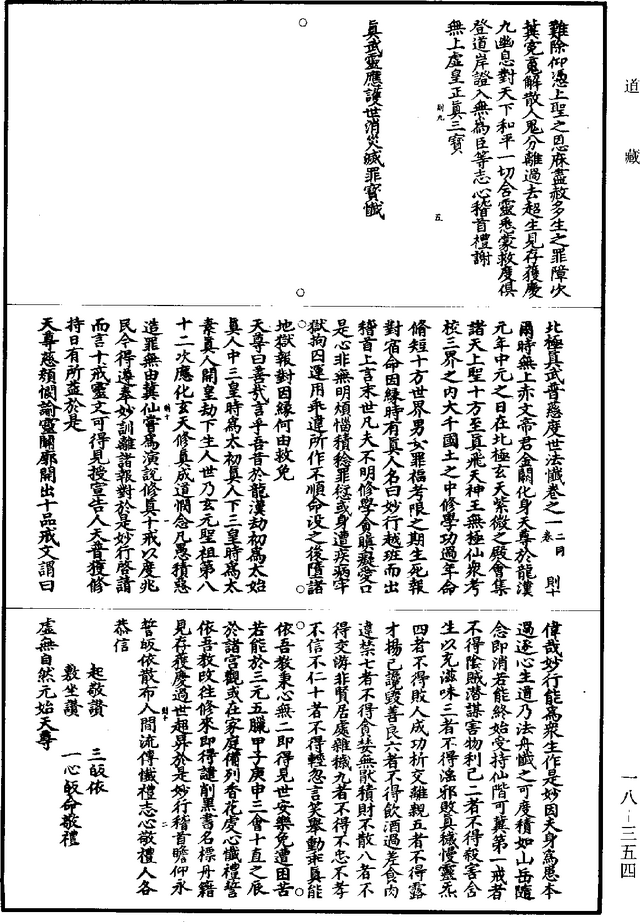 道藏
難除仰憑上聖之恩庥盡赦多生之罪障次
冀冤䰟解散人鬼分離過去超生見存獲慶
九幽息對天下和平一切含靈悉蒙救度俱
登道岸證入無為臣等志心稽首禮謝
無上虛皇正真三寶
則九
五
真武靈應護世消災滅罪寶懺
北極真武普慈度世法懺卷之一
二同卷
則十
爾時無上赤文帝君金闕化身天尊於龍漢
元年中元之日在北極玄天紫微之殿會集
諸天上聖十方至真飛天神王無極仙衆考
校三界之內大千國土之中修學功過年命
脩短十方世界男女罪福考限之期生死報
對宿命因緣時有真人名曰妙行越班而出
稽首上言末世凡夫不明修學貪瞋癡愛口
是心非無明煩惱積稔罪𠎝或身遭疾病牢
獄拘囚運用乖違所作不順命没之後墮諸
地獄報對因緣何由救免
天尊曰善哉言乎吾昔於龍漢劫初為太始
真人中三皇時為太初真人下三皇時為太
素真人開皇劫下生人世乃玄元聖祖第八
十二次應化玄天修真成道憫念凡愚積惡
造罪無由冀仙嘗為演說修真十戒以度兆
則十
一
民令得遵奉妙訓離諸報對於是妙行啓請
而言十戒靈文可得見授宣告人天普獲修
持日有所益於是
天尊慈顏憫諭靈關廓開出十品戒文謂曰
偉哉妙行能為衆生作是妙因夫身為惡本
過逐心生道乃法舟懺之可度積如山岳隨
念即消若能終始受持仙階可冀第一戒者
不得陰賊潛謀害物利己二者不得殺害含
生以充滋味三者不得淫邪敗真穢慢靈炁
四者不得敗人成功析交離親五者不得露
才揚己讒毀善良六者不得飲酒過差食肉
違禁七者不得貪婪無猒積財不散八者不
得交游非賢居處雜穢九者不得不忠不孝
不信不仁十者不得輕忽言笑舉動乖真能
依吾教秉心無二即得見世安樂免遭困苦
若能於三元五臘甲子庚申三會十直之辰
於諸宮觀或在家庭備列香花虔心懺禮誓
依吾教攺往修來即得譴削黑書名標丹籍
見存獲慶過世超昇於是妙行稽首瞻仰永
則十
二
誓皈依散布人間流傳懺禮志心敬禮人各
恭信
起敬讚　三皈依
敷坐讚　一心皈命敬禮
虛無自然元始天尊
一八－三五四